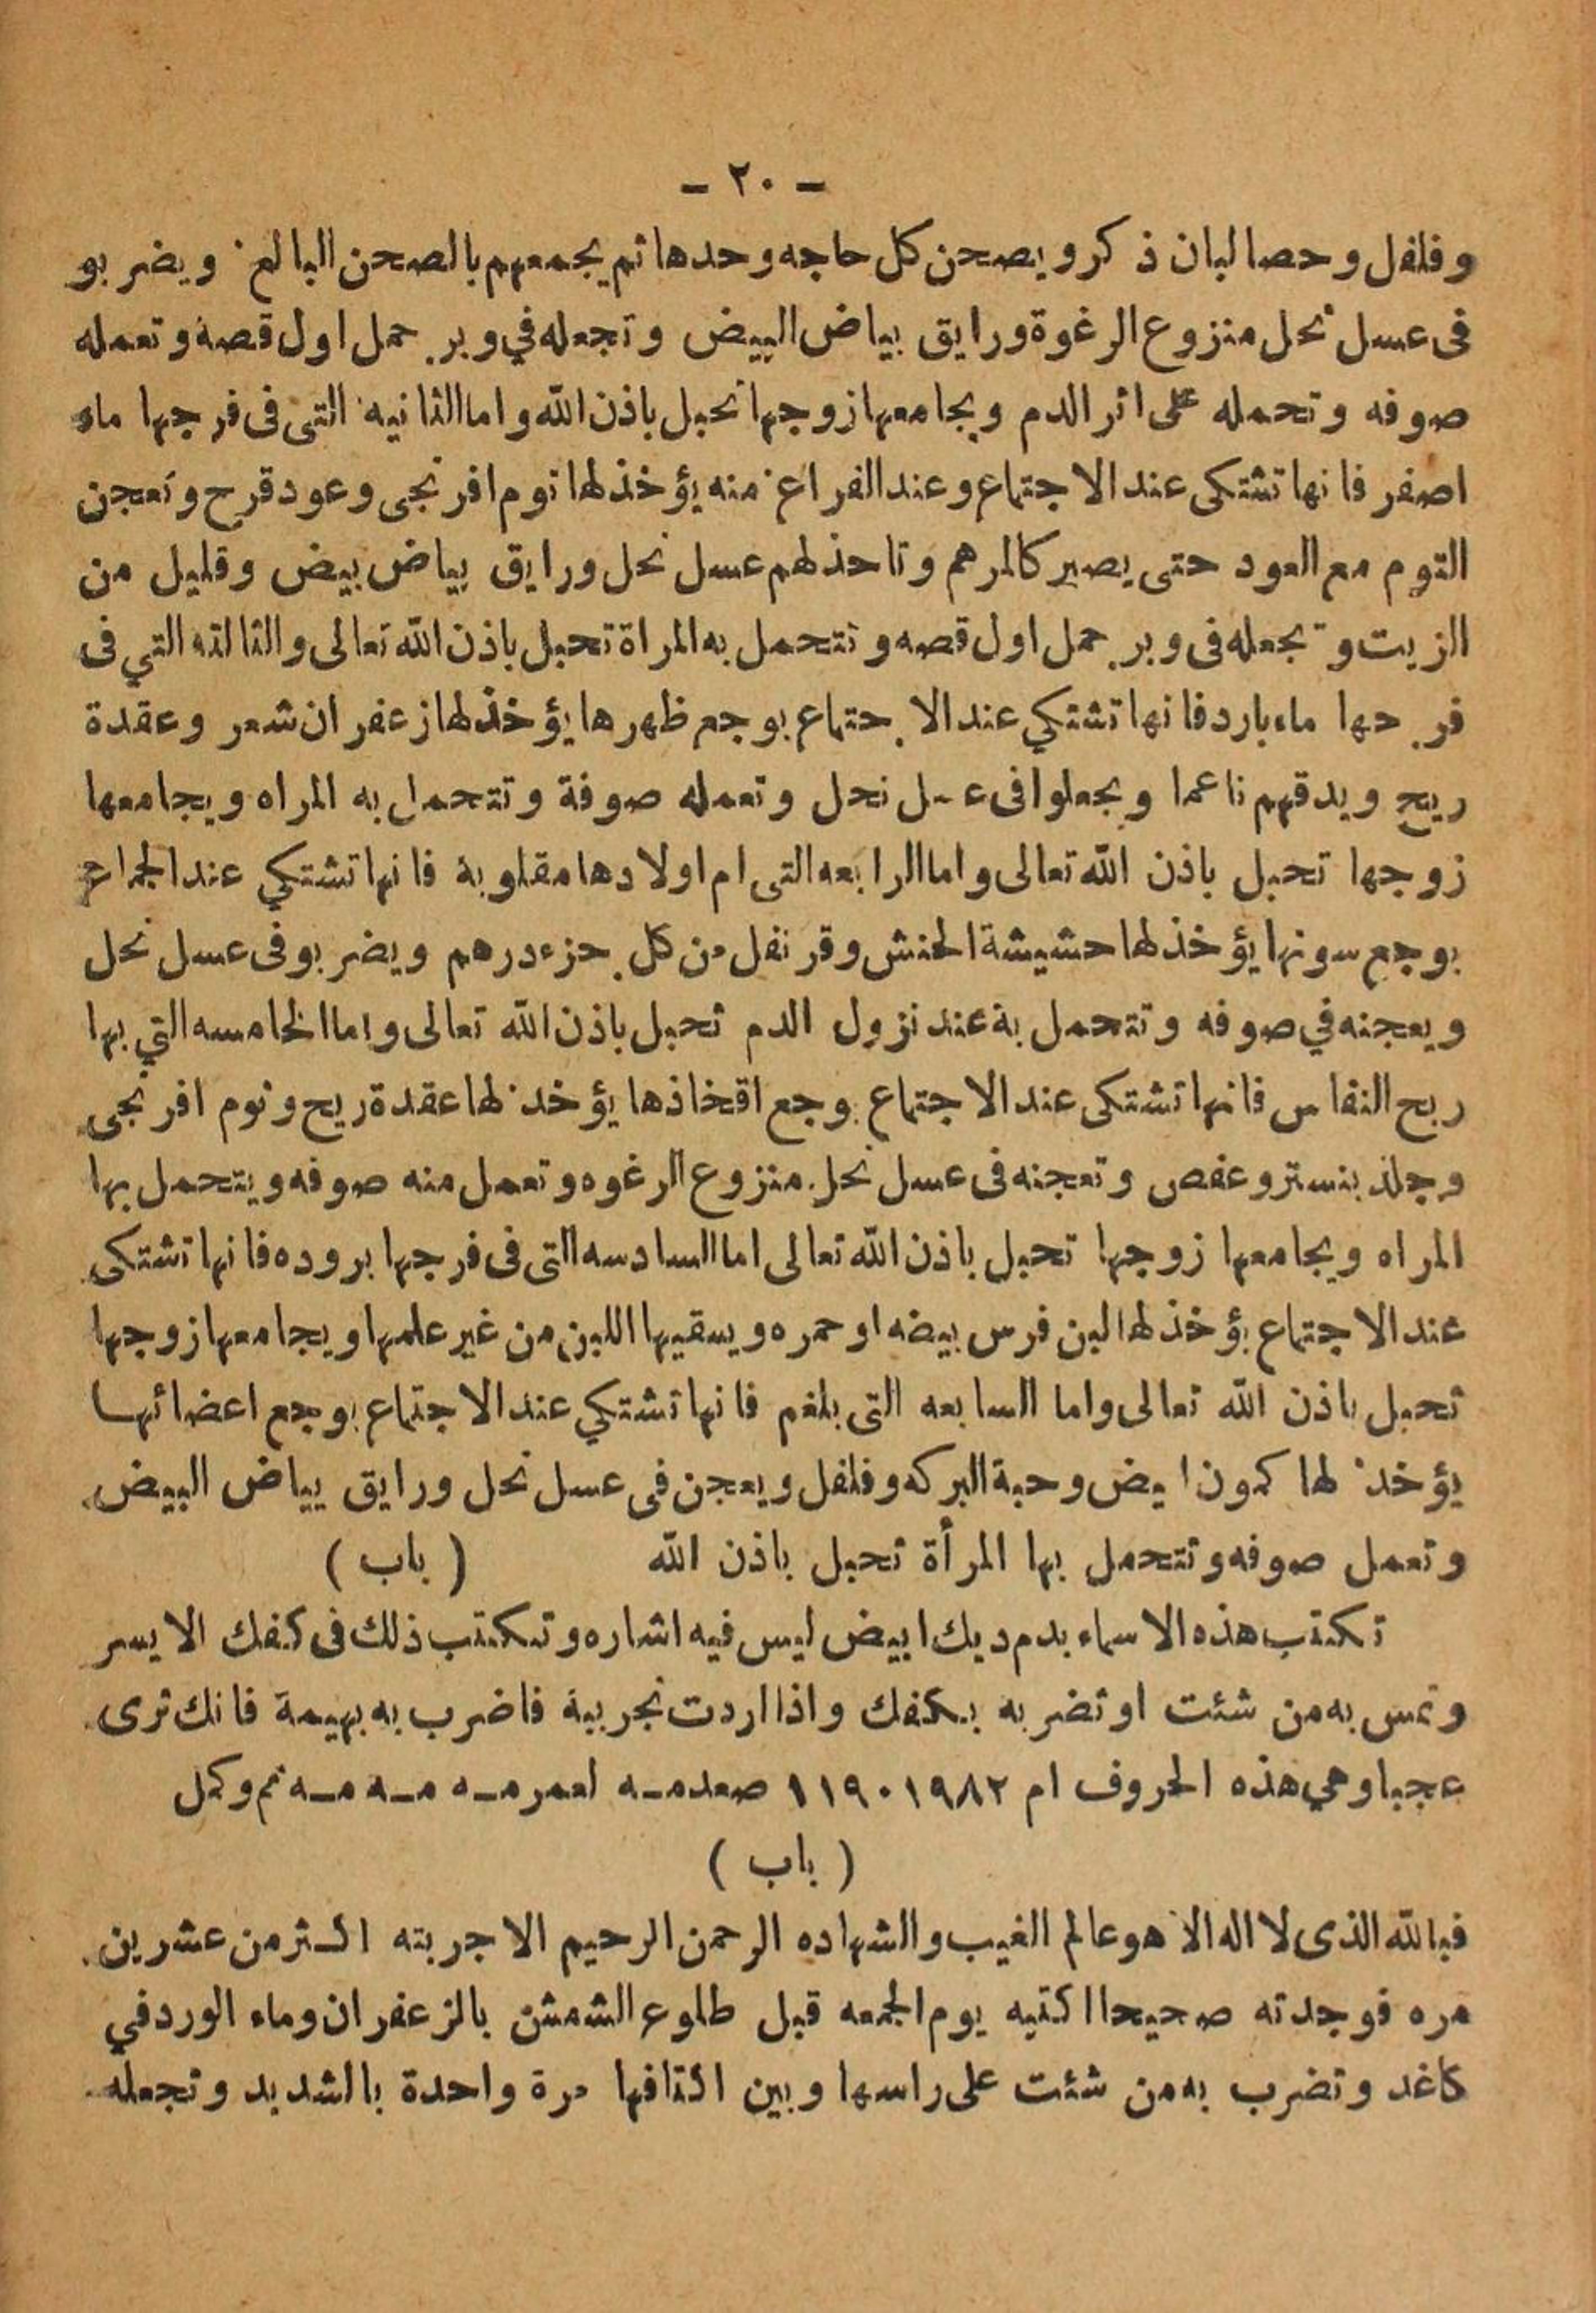 - ٢٠ -
وفلفل وحصا لبان ذكر ويصحن كل حاجه وحدها ثم يجمعهم بالصحن البالغ ويضربو
فى عسل نحل منزوع الرغوة ورايق بياض البيض وتجعله في وبر حمل اول قصة وتعمله
صوفه وتحمله على اثر الدم ويجامعها زوجها تحبل باذن الله واما الثانيه التى فى فرجها ماء
اصفر فانها تشتكى عند الاجتماع وعند الفراغ منه يؤخذ لها توم افرنجى وعود قرح وتعجن
التوم مع العود حتى يصير كالمرهم وتاخذ لهم عسل نحل ورايق بياض بيض وقليل من
الزيت وتجعله فى وبر حمل اول قصه وتتحمل به المراة تحبل باذن الله تعالى والثالثه التي فى
فرجها ماء بارد فانها تشتكي عند الاجتماع بوجع ظهرها يؤخذ لها زعفران شعر وعقدة
ريح ويدقهم ناعما ويجعلوا فى عسل نحل وتعمله صوفة وتتحمل به المراه ويجامعها
زوجها تحبل باذن الله تعالى واما الرابعه التى ام اولادها مقلوبة فانها تشتكي عند الجماع
بوجع سوتها يؤخذ لها حشيشة الحنش وقرنفل من كل جزء درهم ويضربو فى عسل نحل
ويعجنه في صوفه وتتحمل بة عند نزول الدم تحبل باذن الله تعالى واما الخامسه التي بها
ريح النفاس فانها تشتكى عند الاجتماع بوجع افخاذها يؤخذ لها عقدة ريح وتوم افرنجى
وجلد بنستر وعفص وتعجنه فى عسل نحل منزوع الرغوه وتعمل منه صوفه ويتحمل بها
المراه ويجامعها زوجها تحبل باذن الله تعالى اما السادسه التى فى فرجها بروده فانها تشتكى
عند الاجتماع يؤخذ لها لبن فرس بيضه او حمره ويسقيها اللبن من غير علمها ويجامعها زوجها
تحبل باذن الله تعالى واما السابعه التى بلغم فانها تشتكي عند الاجتماع بوجع اعضائها
يؤخذ لها كمون ابيض وحبة البركه وفلفل ويعجن فى عسل نحل ورايق بياض البيض
وتعمل صوفه وتتحمل بها المرأة تحبل باذن الله ( باب )
تكتب هذه الاسماء بدم ديك ابيض ليس فيه اشاره وتكتب ذلك فى كفك الايسر
وتمس به من شئت او تضربه بكفك واذا اردت تجربية فاضرب به بهيمة فانك ترى
عجبا وهي هذه الحروف ام ١١٩٠١٩٨٢ صعدمـه لعمرمـه مـه مـه تم وكمل
( باب )
فبالله الذى لا اله الا هو عالم الغيب والشهاده الرحمن الرحيم الا جربته اكثر من عشرين
مره فوجدته صحيحا اكتبه يوم الجمعه قبل طلوع الشمش بالزعفران وماء الورد في
كاغد وتضرب به من شئت على راسها وبين اكتافها مرة واحدة بالشديد وتجعله